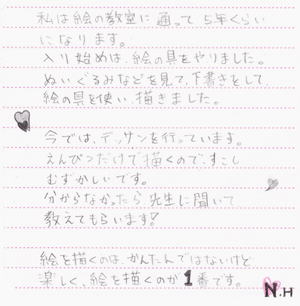 私は絵の教室に通って5年くらい
になります。
入り始めは、絵の具をやりました。
ぬいぐるみなどを見て、下書きをして
絵の具を使い描きました。
今では、デッサンを行っています。
えんぴつだけで描くので、すこし
むずかしいです。
分からなかったら先生に聞いて
教えてもらいます!
絵を描くのは、かんたんではないけど
楽しく、絵を描くのが1番です。
N.H